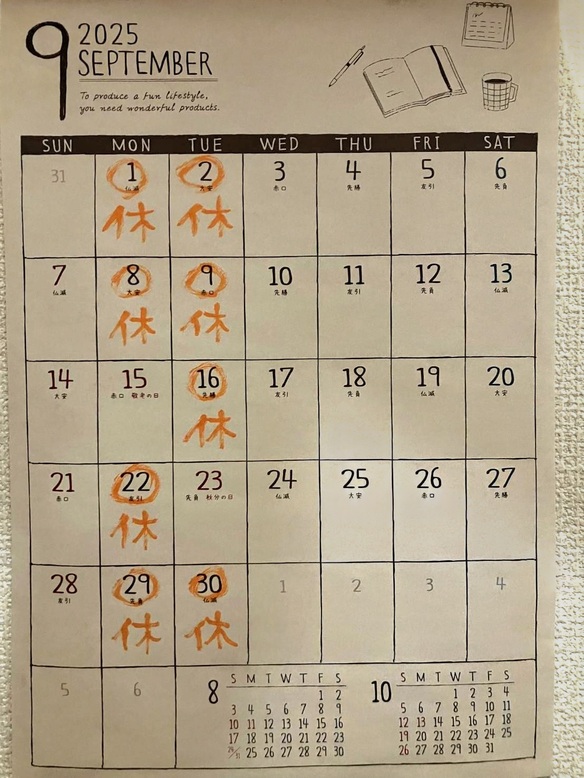 9 2025
SEPTEMBER
To produce a fun lifestyle,
you need wonderful products.
SUN MON TUE WED THU FRI SAT
31 1 2 3 4 5 6
仏滅 大安 赤口 先勝 友引 先負
休 休
7 8 9 10 11 12 13
仏滅 大安 赤口 先勝 友引 先負 仏滅
休 休
14 15 16 17 18 19 20
大安 赤口 敬老の日 先勝 友引 先負 仏滅 大安
休
21 22 23 24 25 26 27
赤口 友引 先負 秋分の日 仏滅 大安 赤口 先勝
休
28 29 30 1 2 3 4
友引 先負 仏滅
休 休
5 6
8
S M T W T F S
1 2
3 4 5 6 7 8 9
10 11 12 13 14 15 16
17 18 19 20 21 22 23
24/31 25 26 27 28 29 30
10
S M T W T F S
1 2 3 4
5 6 7 8 9 10 11
12 13 14 15 16 17 18
19 20 21 22 23 24 25
26 27 28 29 30 31